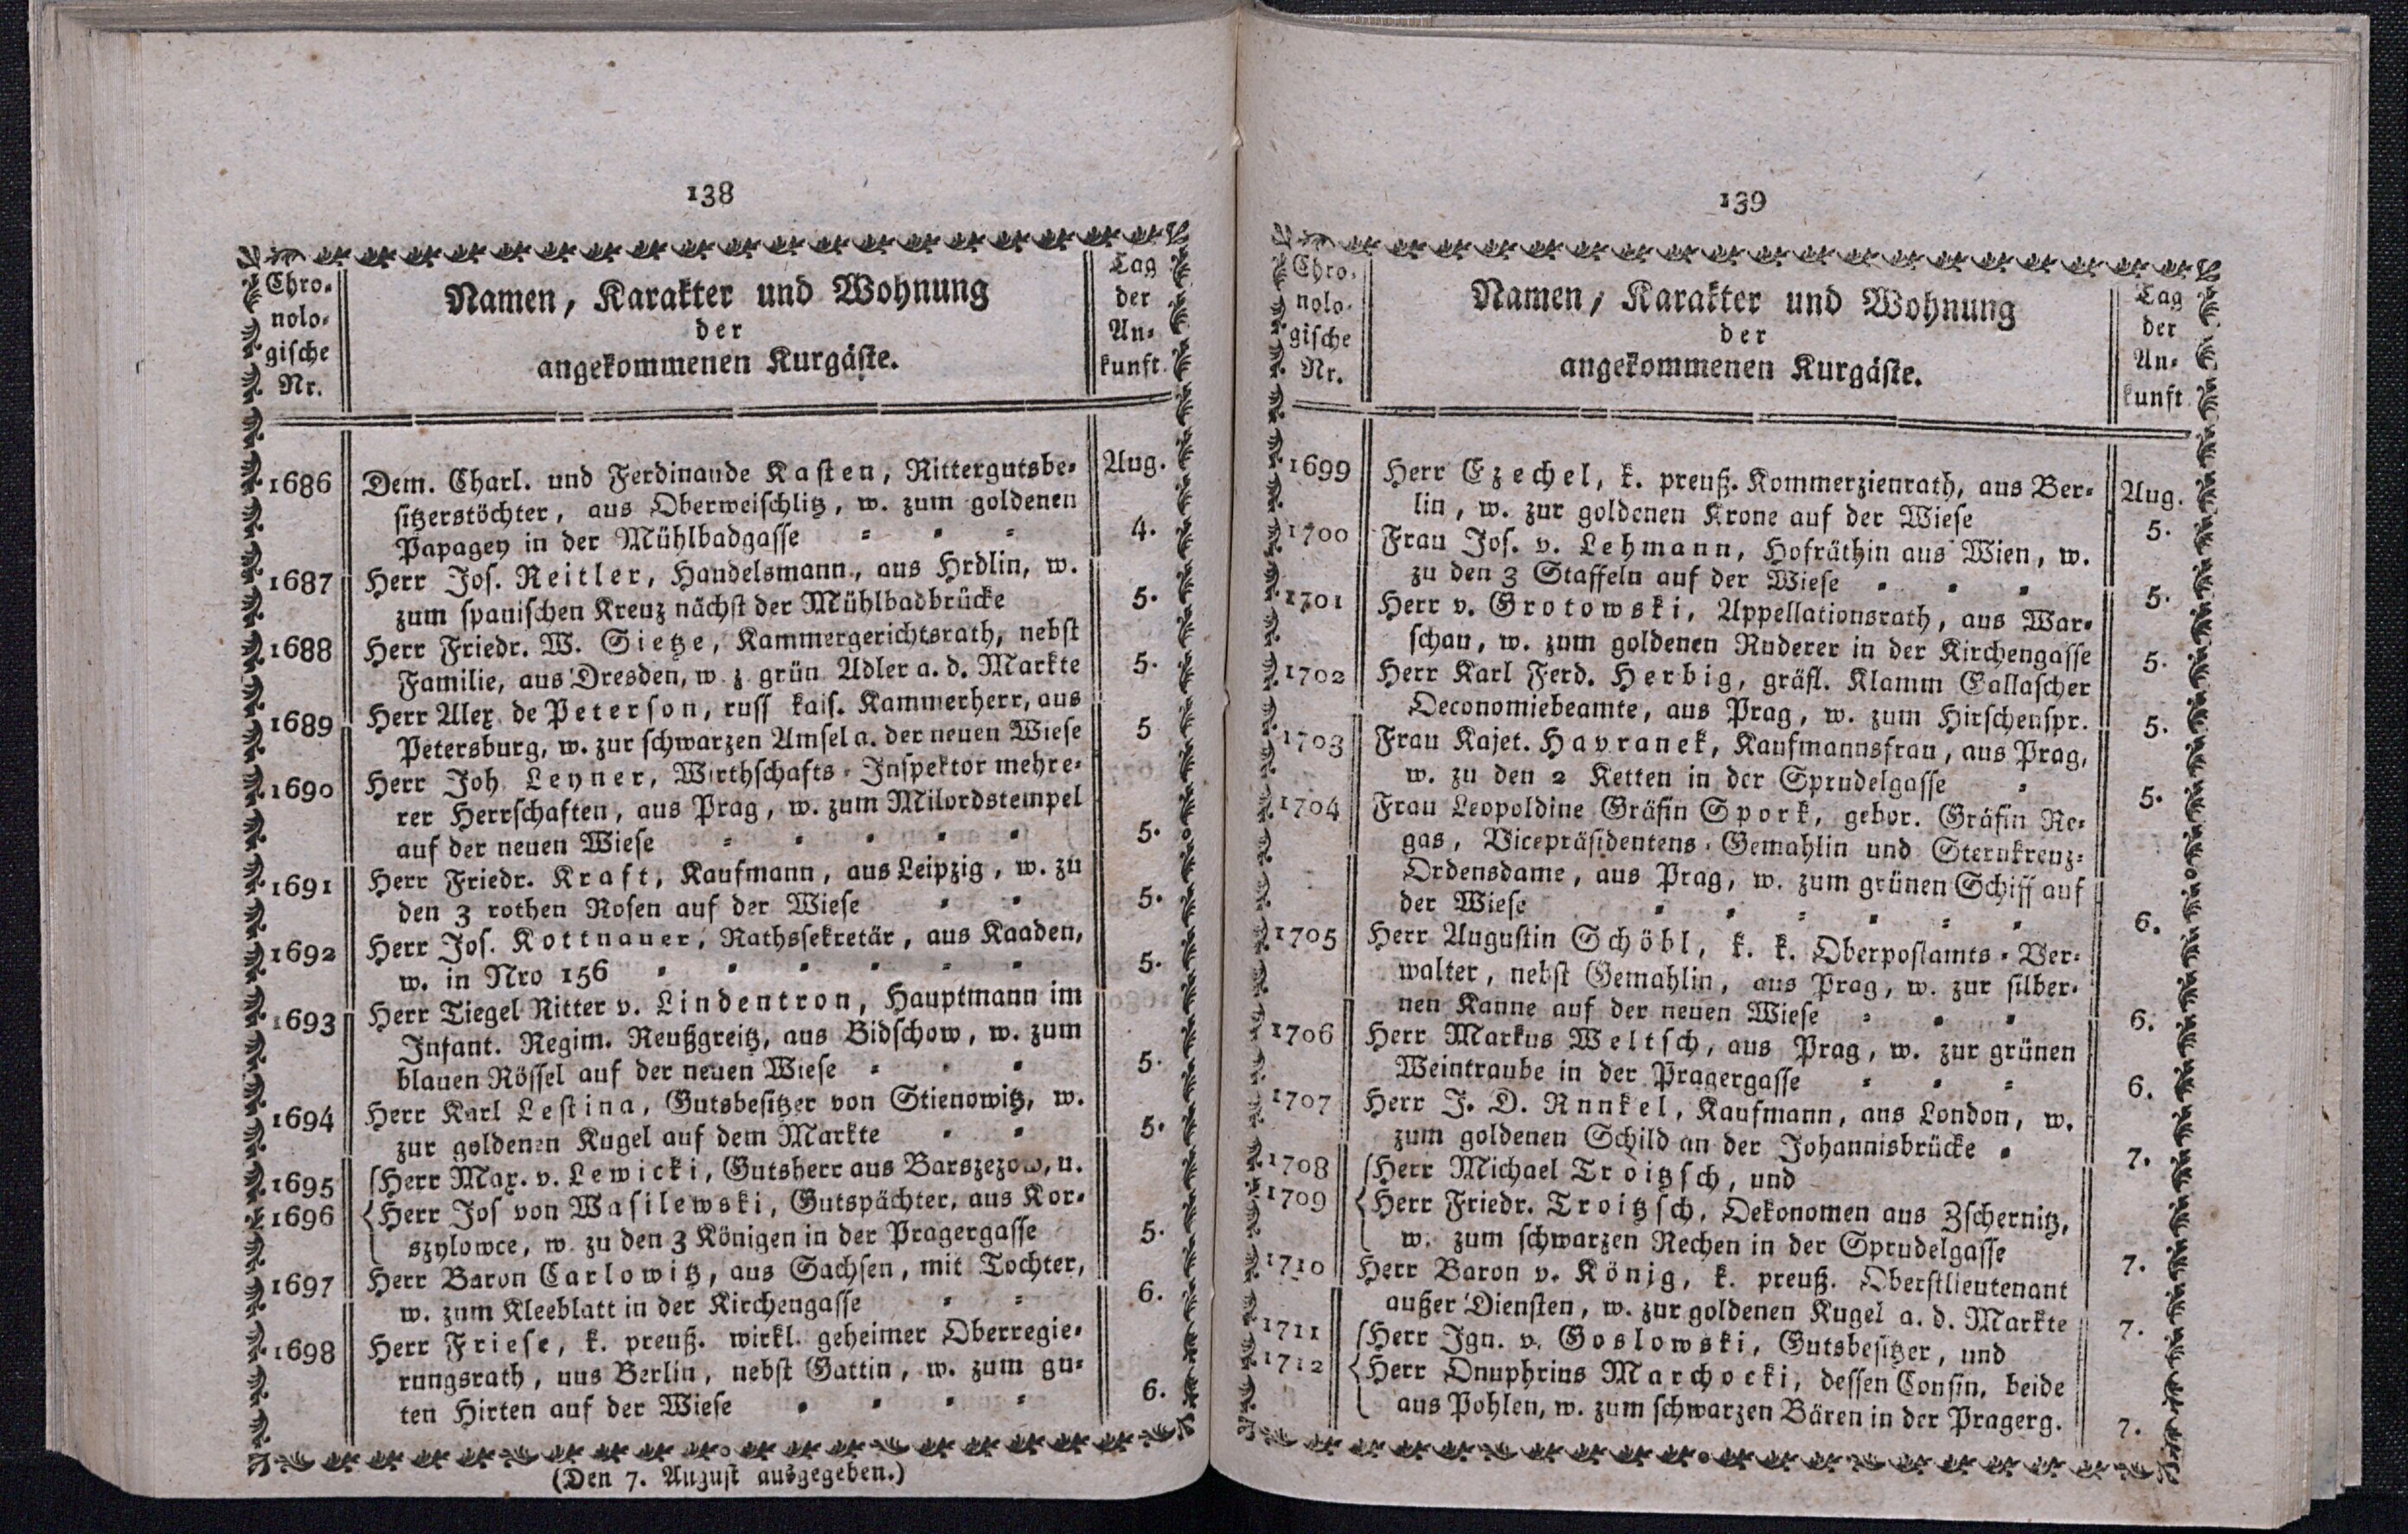 138
Chro⸗
nolo⸗
gische
Nr.
Namen, Karakter und Wohnung
der
angekommenen Kurgäste.
Tag
der
An⸗
kunft
Aug.
1686 Dem. Charl. und Ferdinande Kasten, Rittergutsbe⸗
sitzerstöchter, aus Oberweischlitz, w. zum goldenen
Papagey in der Mühlbadgasse ⸗ ⸗ ⸗ 4.
1687 Herr Jos. Reitler, Handelsmann, aus Hrdlin, w.
zum spanischen Kreuz nächst der Mühlbadbrücke 5.
1688 Herr Friedr. W. Sietze, Kammergerichtsrath, nebst
Familie, aus Dresden, w z grün Adler a. d. Markte 5.
1689 Herr Alex. de Peterson, russ kais. Kammerherr, aus
Petersburg, w. zur schwarzen Amsel a. der neuen Wiese 5
1690 Herr Joh Leyner, Wirthschafts⸗Inspektor mehre⸗
rer Herrschaften, aus Prag, w. zum Milordstempel
auf der neuen Wiese ⸗ ⸗ ⸗ ⸗ ⸗ 5.
1691 Herr Friedr. Kraft, Kaufmann, aus Leipzig, w. zu
den 3 rothen Rosen auf der Wiese ⸗ ⸗ 5.
1692 Herr Jos. Kottnauer, Rathssekretär, aus Kaaden,
w. in Nro 156 ⸗ ⸗ ⸗ ⸗ ⸗ ⸗ 5.
1693 Herr Tiegel Ritter v. Lindentron, Hauptmann im
Infant. Regim. Reußgreitz, aus Bidschow, w. zum
blauen Rössel auf der neuen Wiese ⸗ ⸗ ⸗ 5.
1694 Herr Karl Lestina, Gutsbesitzer von Stienowitz, w.
zur goldenen Kugel auf dem Markte ⸗ ⸗ 5.
1695 Herr Max. v. Lewicki, Gutsherr aus Barszezow, u.
1696 Herr Jos von Wasilewski, Gutspächter, aus Kor⸗
szylowce, w. zu den 3 Königen in der Pragergasse 5.
1697 Herr Baron Carlowitz, aus Sachsen, mit Tochter,
w. zum Kleeblatt in der Kirchengasse ⸗ ⸗ 6.
1698 Herr Friese, k. preuß. wirkl. geheimer Oberregie⸗
rungsrath, uus Berlin, nebst Gattin, w. zum gu⸗
ten Hirten auf der Wiese ⸗ ⸗ ⸗ ⸗ 6.
(Den 7. August ausgegeben.)
139
Chro⸗
nolo⸗
gische
Nr.
Namen, Karakter und Wohnung
der
angekommenen Kurgäste.
Tag
der
An⸗
kunft
Aug.
1699 Herr Ezechel, k. preuß. Kommerzienrath, aus Ber⸗
lin, w. zur goldenen Krone auf der Wiese 5.
1700 Frau Jos. v. Lehmann, Hofräthin aus Wien, w.
zu den 3 Staffeln auf der Wiese ⸗ ⸗ ⸗ 5.
1701 Herr v. Grotowski, Appellationsrath, aus War⸗
schau, w. zum goldenen Ruderer in der Kirchengasse 5.
1702 Herr Karl Ferd. Herbig, gräfl. Klamm Gallascher
Oeconomiebeamte, aus Prag, w. zum Hirschenspr. 5.
1703 Frau Kajet. Havranek, Kaufmannsfrau, aus Prag,
w. zu den 2 Ketten in der Sprudelgasse ⸗ 5.
1704 Frau Leopoldine Gräfin Spork, gebor. Gräfin Re⸗
gas, Vicepräsidentens⸗Gemahlin und Sternkreuz⸗
Ordensdame, aus Prag, w. zum grünen Schiff auf
der Wiese ⸗ ⸗ ⸗ ⸗ ⸗ ⸗ 6.
1705 Herr Augustin Schöbl, k. k. Oberpostamts⸗Ver⸗
walter, nebst Gemahlin, aus Prag, w. zur silber⸗
nen Kanne auf der neuen Wiese ⸗ ⸗ ⸗ 6.
1706 Herr Markus Weltsch, aus Prag, w. zur grünen
Weintraube in der Pragergasse ⸗ ⸗ ⸗ 6.
1707 Herr J. D. Runkel, Kaufmann, aus London, w.
zum goldenen Schild an der Johannisbrücke ⸗ 7.
1708 Herr Michael Troitzsch, und
1709 Herr Friedr. Troitzsch, Oekonomen aus Zschernitz,
w. zum schwarzen Rechen in der Sprudelgasse 7.
1710 Herr Baron v. König, k. preuß. Oberstlieutenant
außer Diensten, w. zur goldenen Kugel a. d. Markte 7.
1711 Herr Ign. v. Goslowski, Gutsbesitzer, und
1712 Herr Onuphrius Marchocki, dessen Cousin, beide
aus Pohlen, w. zum schwarzen Bären in der Pragerg. 7.